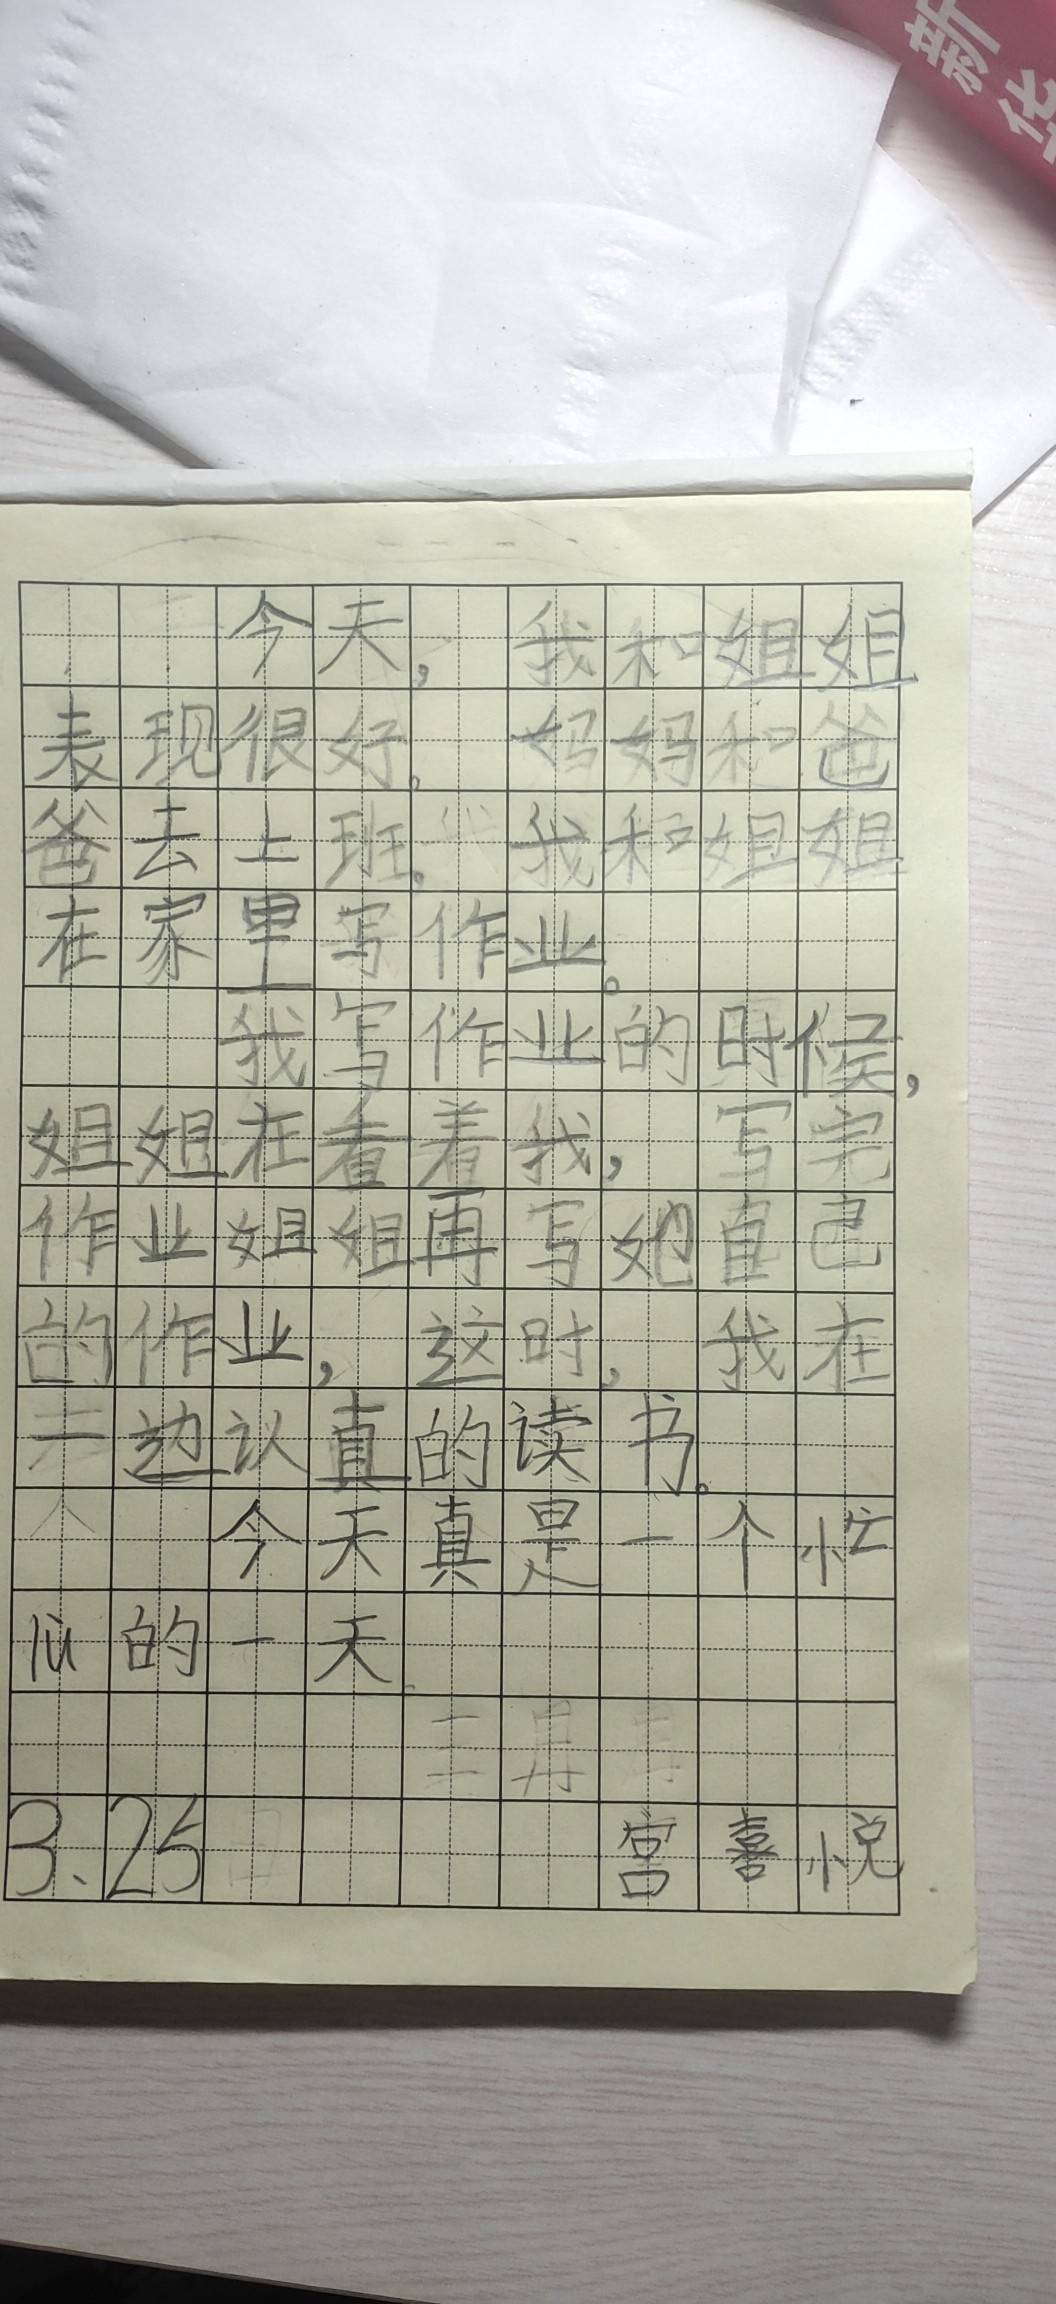 新华
今天,我和姐姐
表现很好。妈妈和爸
爸去上班。我和姐姐
在家里写作业。
我写作业的时候,
姐姐在看着我,写完
作业姐姐再写她自己
的作业,这时,我在
一边认真的读书。
今天真是一个忙
的一天
3.25 宫喜悦